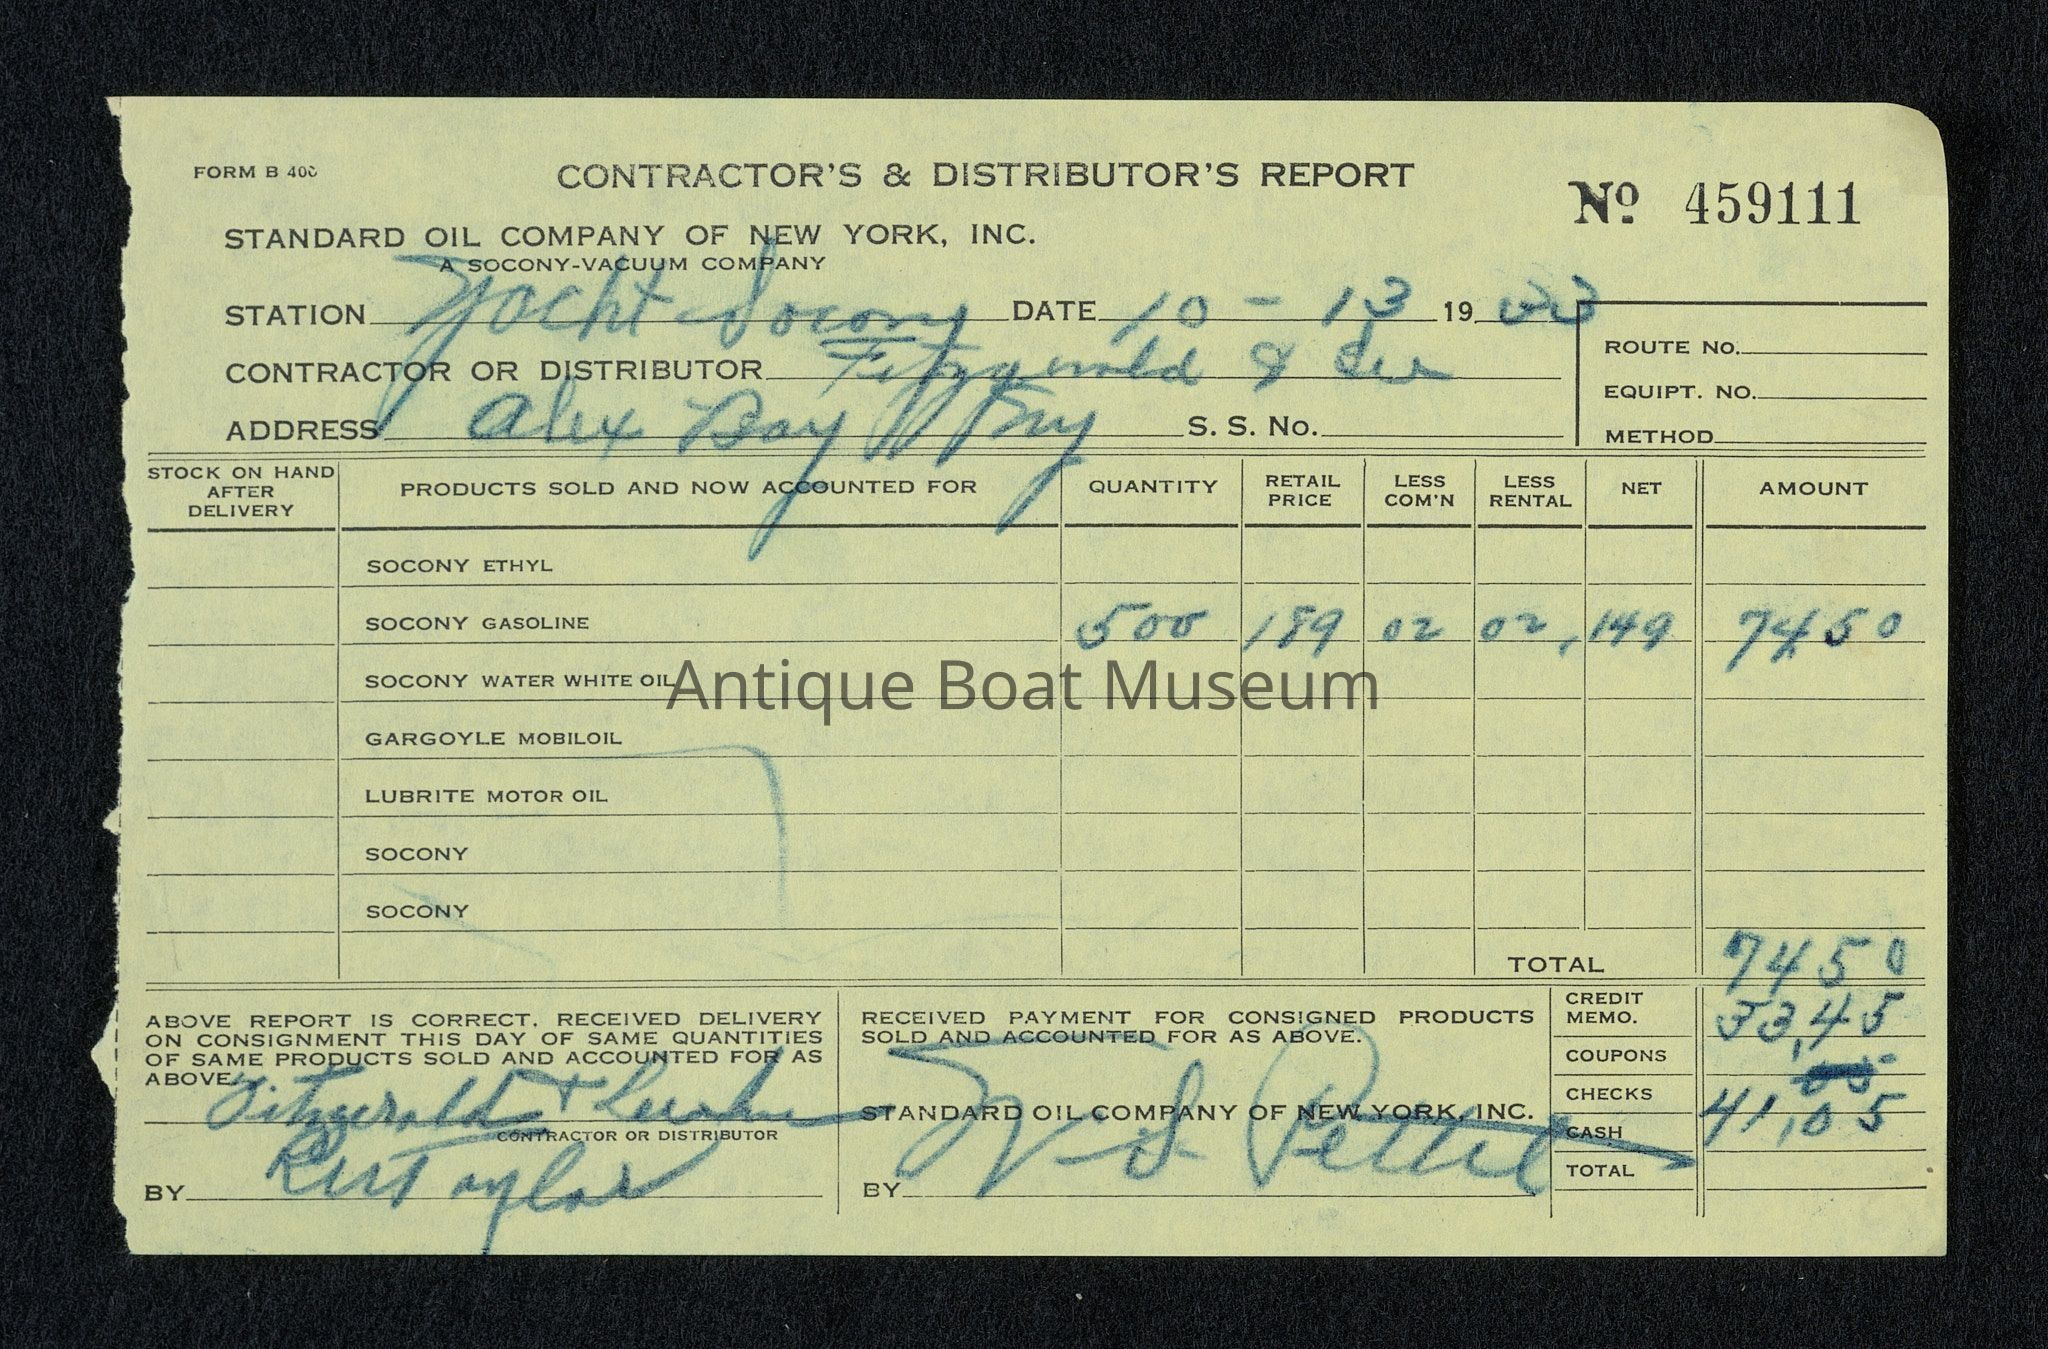 FORM B 40
CONTRACTOR'S & DISTRIBUTOR'S REPORT
No 459111
STANDARD OIL COMPANY OF NEW YORK, INC.
A SOCONY-VACUUM COMPANY
STATION Yacht Socony DATE 10 - 13 19 33
CONTRACTOR OR DISTRIBUTOR Fitzgerald &
ADDRESS Alex Bay NY S. S. No.
ROUTE No.
EQUIPT. NO.
METHOD
STOCK ON HAND AFTER DELIVERY PRODUCTS SOLD AND NOW ACCOUNTED FOR QUANTITY RETAIL PRICE LESS COM'N LESS RENTAL NET AMOUNT
SOCONY ETHYL
SOCONY GASOLINE 500 189 02 02 , 149 7450
SOCONY WATER WHITE OIL
Antique Boat Museum
GARGOYLE MOBILOIL
LUBRITE MOTOR OIL
SOCONY
SOCONY
TOTAL 7450
ABOVE REPORT IS CORRECT. RECEIVED DELIVERY
ON CONSIGNMENT THIS DAY OF SAME QUANTITIES
OF SAME PRODUCTS SOLD AND ACCOUNTED FOR AS
ABOVE.
Fitzgerald +
CONTRACTOR OR DISTRIBUTOR
BY Taylor
RECEIVED PAYMENT FOR CONSIGNED PRODUCTS
SOLD AND ACCOUNTED FOR AS ABOVE.
STANDARD OIL COMPANY OF NEW YORK, INC.
BY
CREDIT MEMO. 33,45
COUPONS
CHECKS 41,05
CASH
TOTAL